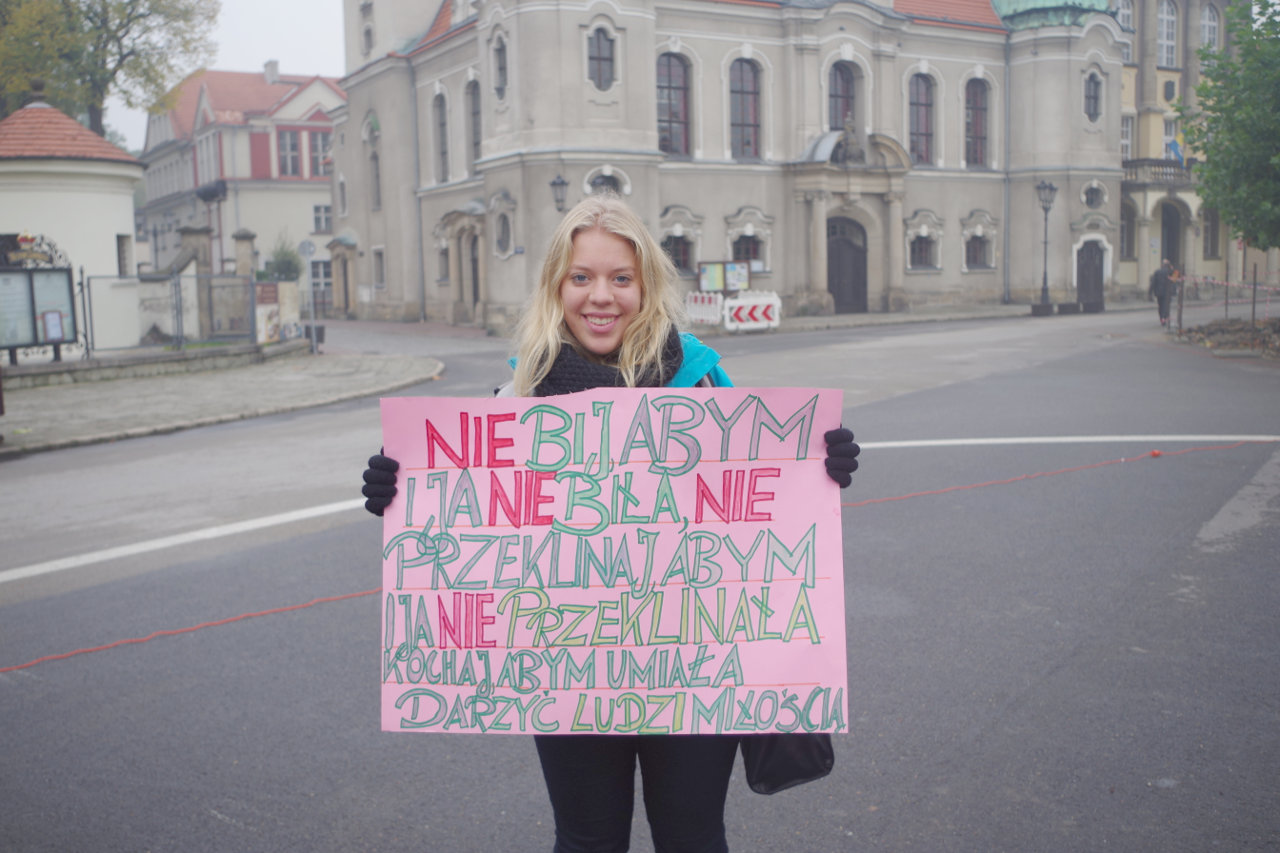 NIE BIJ, ABYM
I JA NIE BIŁA, NIE
PRZEKLINAJ, ABYM
I JA NIE PRZEKLINAŁA
KOCHAJ, ABYM UMIAŁA
DARZYĆ LUDZI MIŁOŚCIĄ